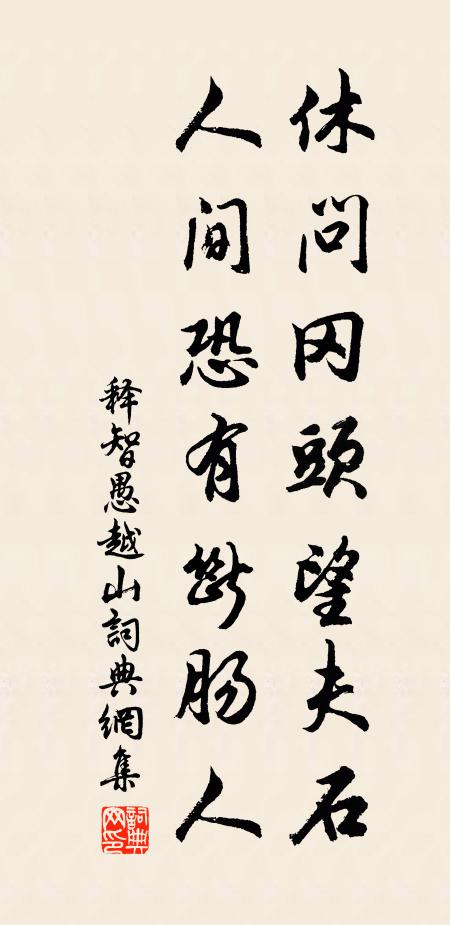 休問冈頭望夫石
人间恐有断肠人
释智愚越山詞典網集
詞典网印